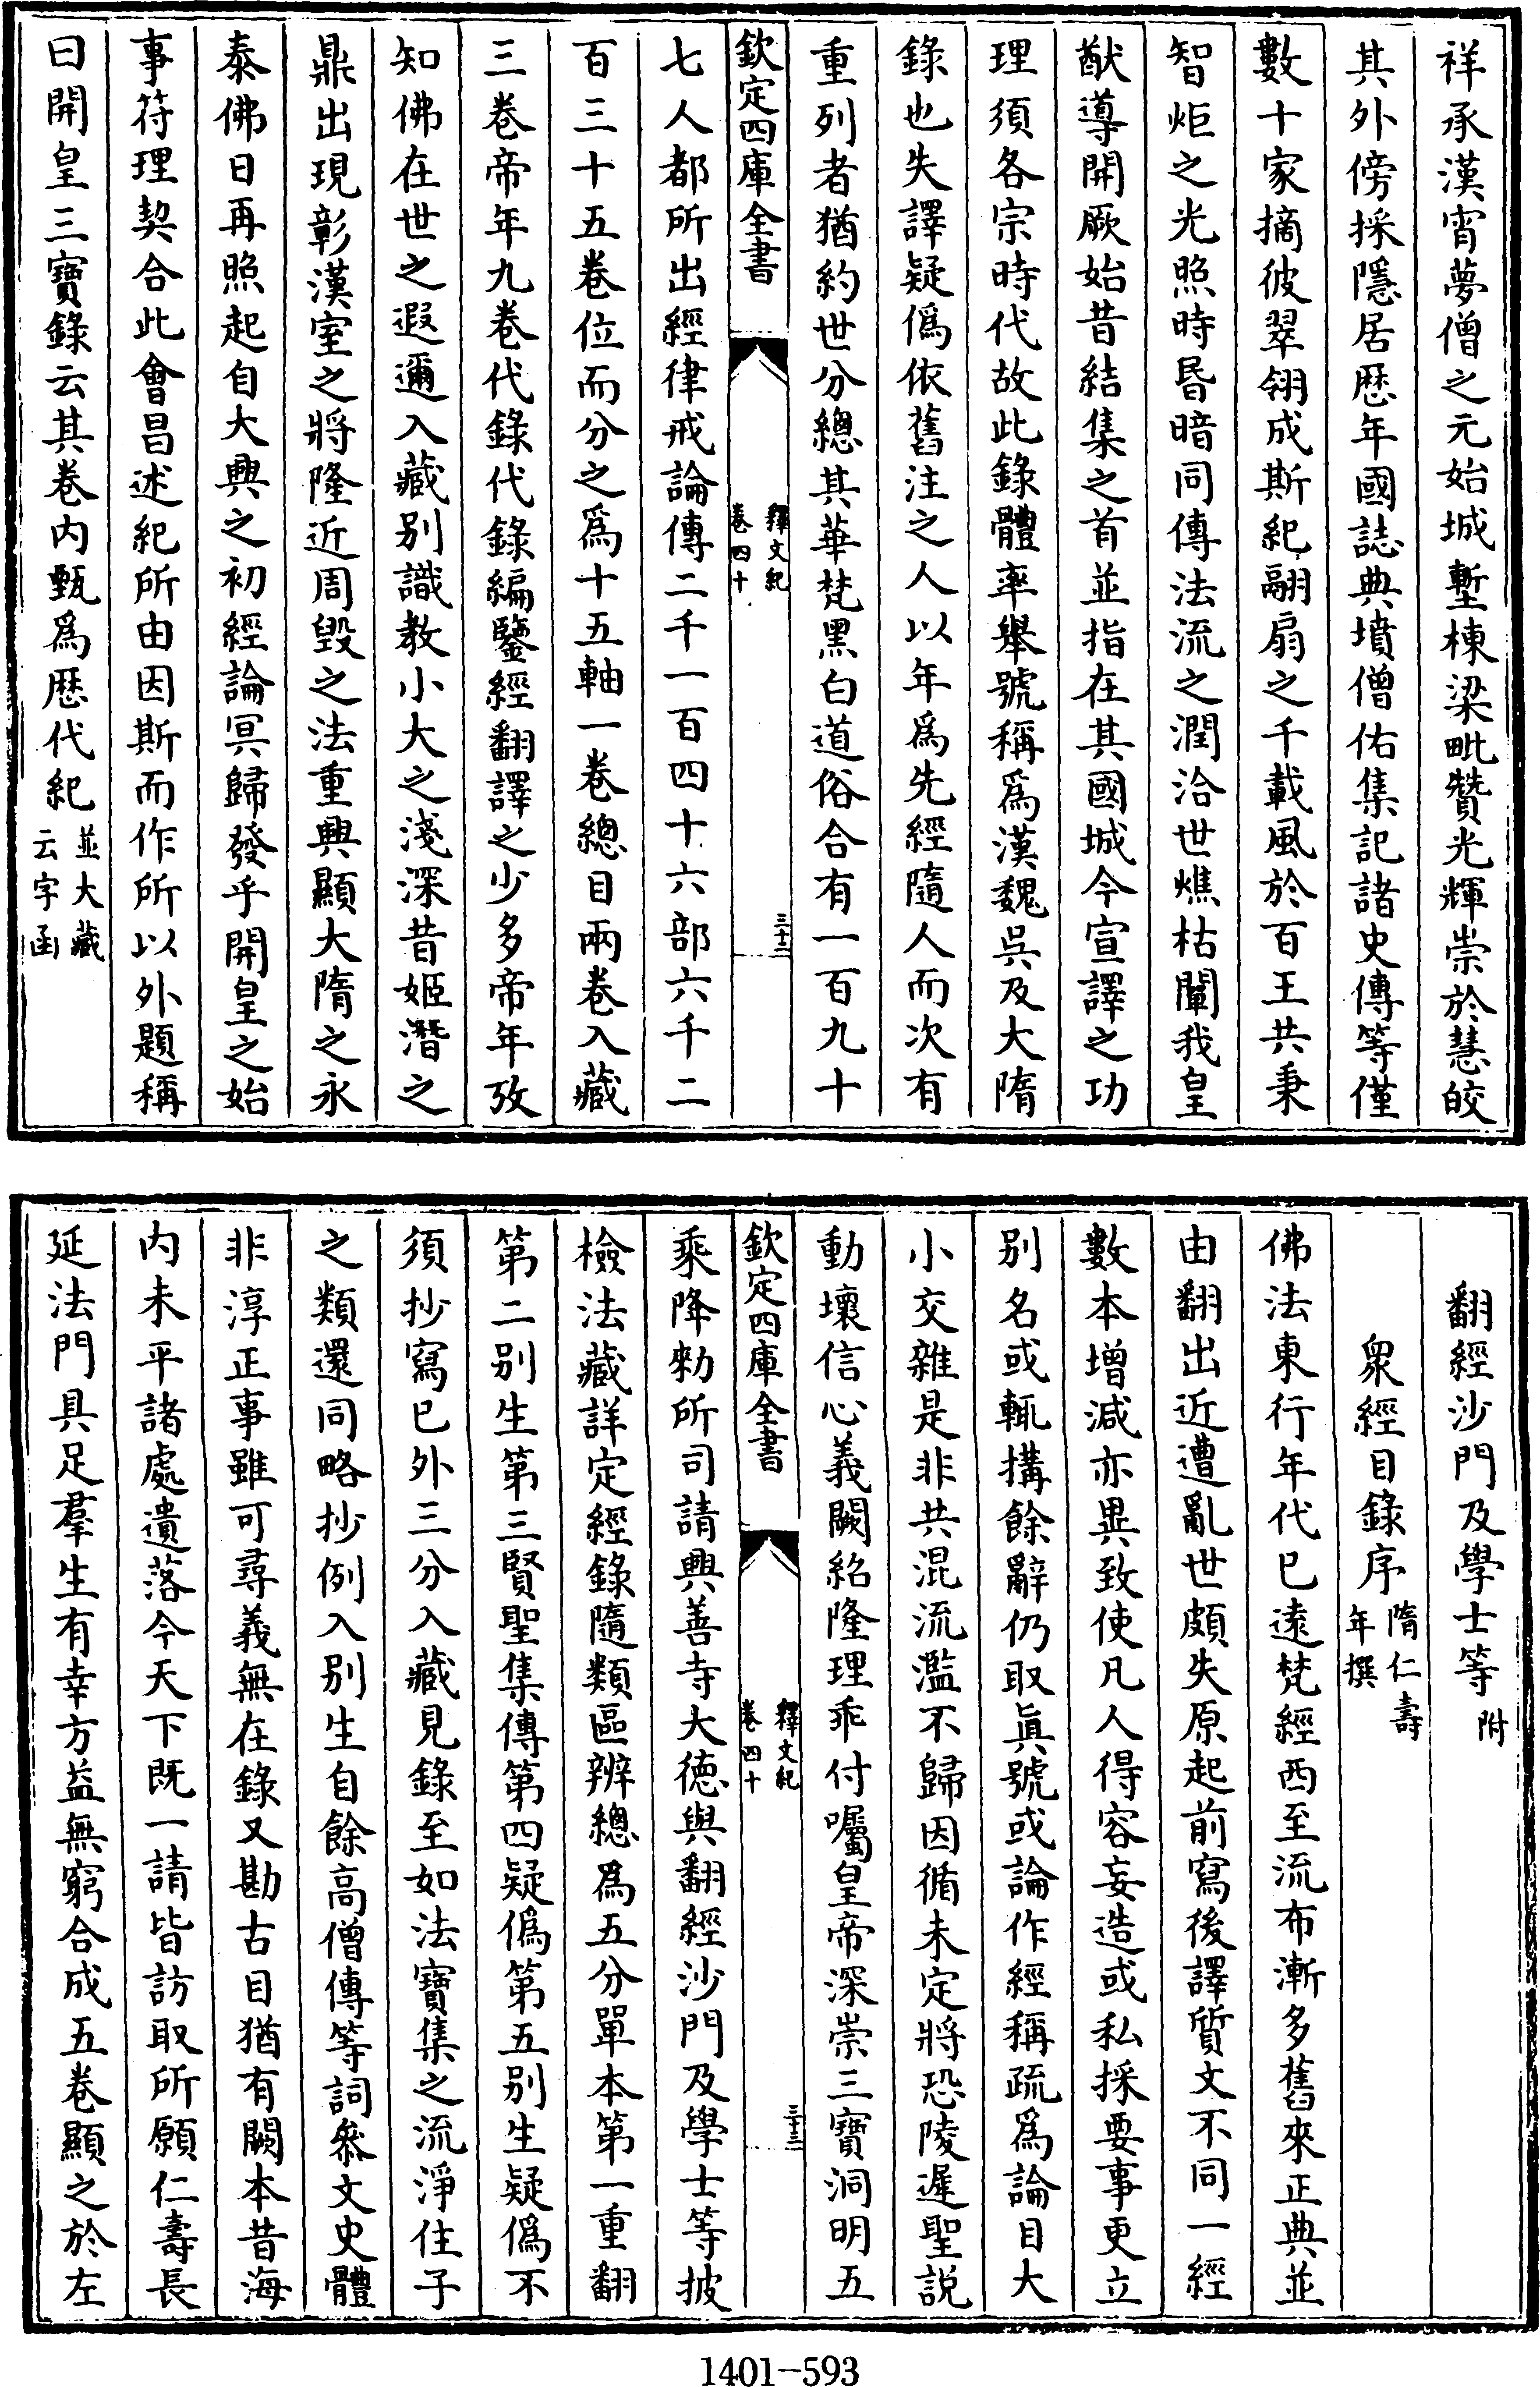 祥承漢宵夢僧之元始城塹棟梁毗贊光輝崇於慧皎
其外傍採隱居歴年國誌典墳僧佑集記諸史傳等僅
數十家摘彼翠翎成斯紀翮扇之千載風於百王共秉
智炬之光照時昬暗同傳法流之潤洽世燋枯闡我皇
猷導開厥始昔結集之首並指在其國城今宣譯之功
理須各宗時代故此錄體率舉號稱爲漢魏呉及大隋
錄也失譯疑僞依舊注之人以年爲先經隨人而次有
重列者猶約世分總其華梵黑白道俗合有一百九十
欽定四庫全書
釋文紀
卷四十
三十二
七人都所出經律戒論傳二千一百四十六部六千二
百三十五卷位而分之爲十五軸一卷總目兩卷入藏
三卷帝年九卷代錄代錄編鑒經翻譯之少多帝年攷
知佛在世之遐邇入藏别識教小大之淺深昔姬潛之
鼎出現彰漢室之將隆近周毀之法重興顯大隋之永
泰佛日再照起自大興之初經論冥歸發乎開皇之始
事符理契合此會昌述紀所由因斯而作所以外題稱
曰開皇三寶錄云其卷内甄爲歴代紀
並大藏
云字函
翻經沙門及學士等附
衆經目錄序
隋仁壽
年撰
佛法東行年代已遠梵經西至流布漸多舊來正典並
由翻出近遭亂世頗失原起前寫後譯質文不同一經
數本增減亦異致使凡人得容妄造或私採要事更立
别名或輒搆餘辭仍取眞號或論作經稱疏爲論目大
小交雜是非共混流濫不歸因循未定將恐陵遲聖説
動壞信心義闕紹隆理乖付囑皇帝深崇三寶洞明五
欽定四庫全書
釋文紀
卷四十
三十三
乘降勑所司請興善寺大德與翻經沙門及學士等披
檢法藏詳定經錄隨類區辨總爲五分單本第一重翻
第二别生第三賢聖集傳第四疑僞第五别生疑僞不
須抄寫已外三分入藏見錄至如法寶集之流淨住子
之類還同略抄例入别生自餘高僧傳等詞參文史體
非淳正事雖可尋義無在錄又勘古目猶有闕本昔海
内未平諸處遺落今天下既一請皆訪取所願仁壽長
延法門具足羣生有幸方益無窮合成五卷顯之於左
1401-593